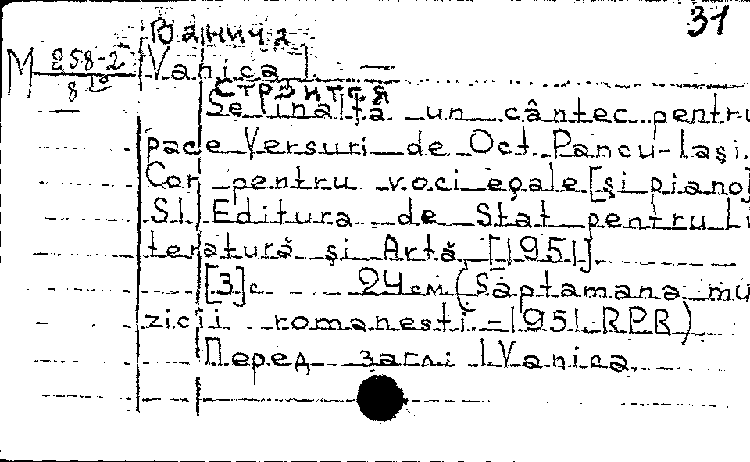 31
Ванича
М 258-2 Vanica I. —
8
Строится
Se'inalţă un cântec pentru
pace Versuri de Oct. Pancu-Iaşi.
Cor pentru voci egale [şi piano]
S.l. Editura de Stat pentru Li
teratură şi Artă, [1951].
[3]с 24 см (Săptamana mu
zicii romanesti - 1951 RPR)
Перед загл: I Vanica.